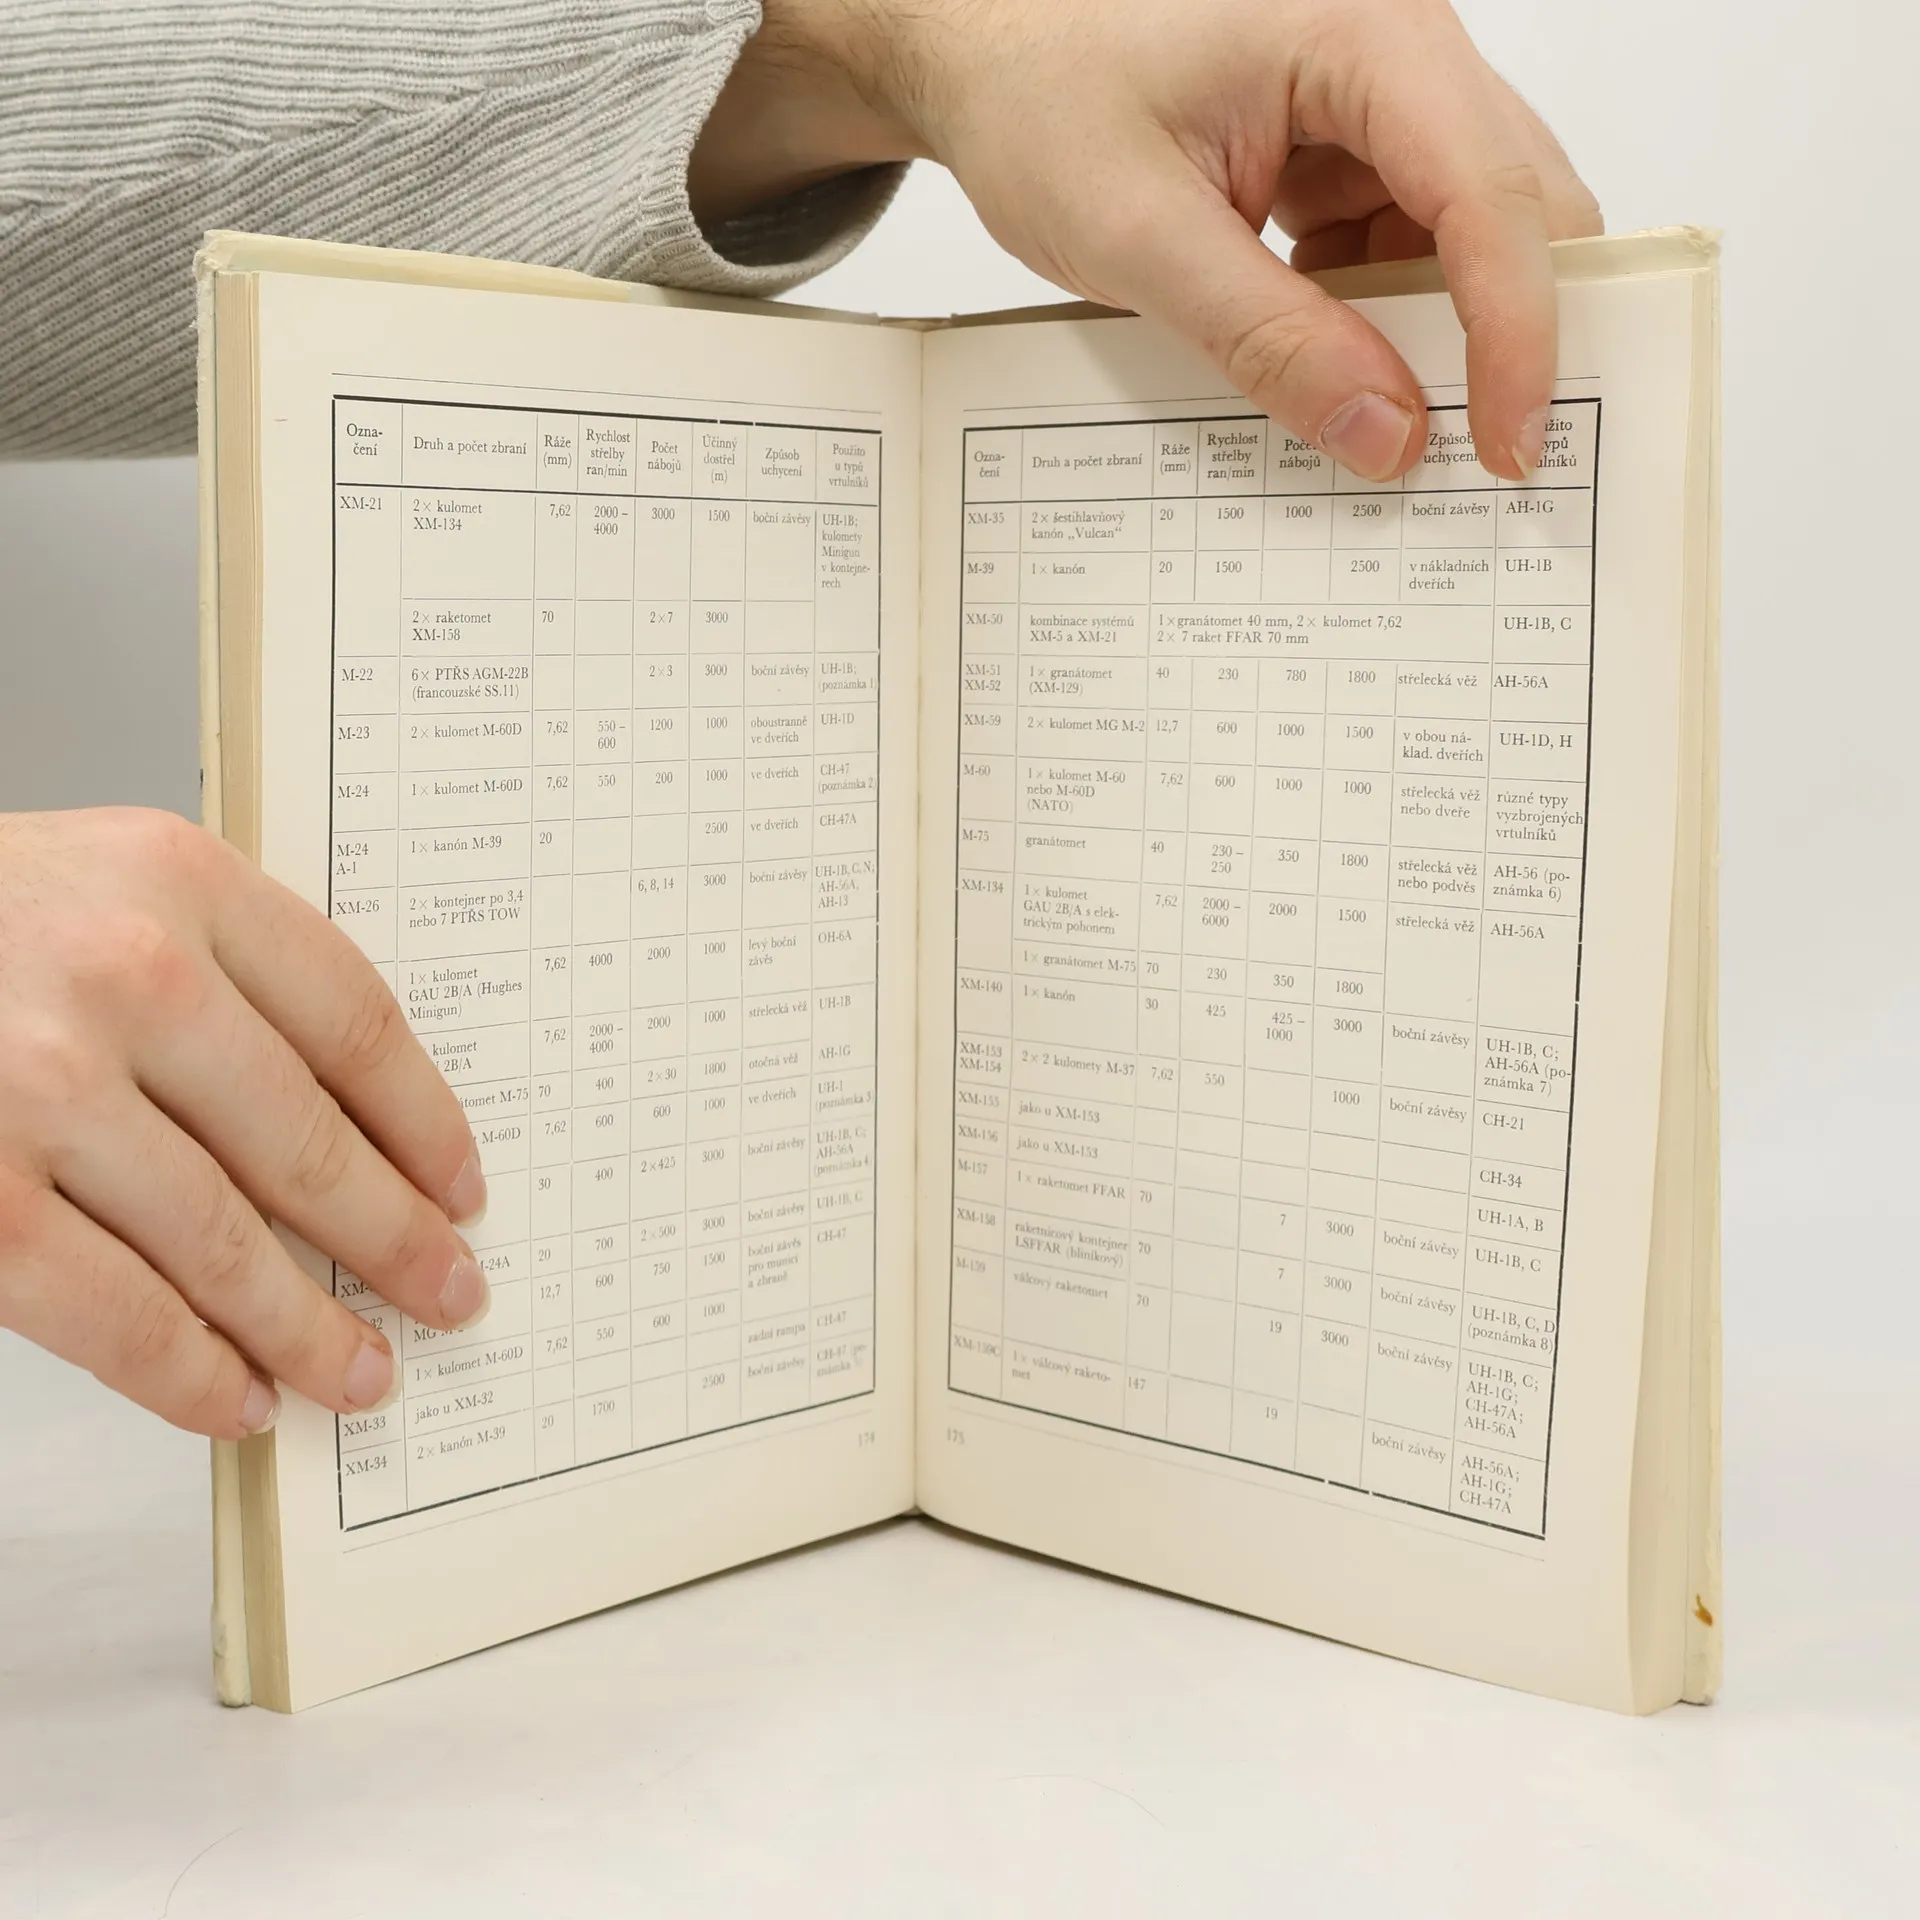 Ozna-
čení
Druh a počet zbraní
Ráže
(mm)
Rychlost
střelby
ran/min
Počet
nábojů
Účinný
dostřel
(m)
Způsob
uchycení
Použito
u typů
vrtulníků
XM-21
2× kulomet
XM-134
7,62
2000 –
4000
3000
1500
boční závěsy
UH-1B;
kulomety
Minigun
v kontejne-
rech
2× raketomet
XM-158
70
2×7
3000
M-22
6× PTŘS AGM-22B
(francouzské SS.11)
2×3
3000
boční závěsy
UH-1B;
(poznámka 1)
M-23
2× kulomet M-60D
7,62
550 –
600
1200
1000
oboustranně
ve dveřích
UH-1D
M-24
1× kulomet M-60D
7,62
550
200
1000
ve dveřích
CH-47
(poznámka 2)
M-24
A-1
1× kanón M-39
20
2500
ve dveřích
CH-47A
XM-26
2× kontejner po 3,4
nebo 7 PTŘS TOW
6, 8, 14
3000
boční závěsy
UH-1B, C, N;
AH-56A,
AH-13
1× kulomet
GAU 2B/A (Hughes
Minigun)
7,62
4000
2000
1000
levý boční
závěs
OH-6A
kulomet
2B/A
7,62
2000 –
4000
2000
1000
střelecká věž
UH-1B
M-75
70
400
2×30
1800
otočná věž
AH-1G
M-60D
7,62
600
600
1000
ve dveřích
UH-1
(poznámka 3)
30
400
2×425
3000
boční závěsy
UH-1B, C;
AH-56A
(poznámka 4)
-24A
20
700
2×500
3000
boční závěsy
UH-1B, C
XM-
12,7
600
750
1500
boční závěs
pro munici
a zbraně
CH-47
32
MG
1× kulomet M-60D
7,62
550
600
1000
zadní rampa
CH-47
XM-33
jako u XM-32
XM-34
2× kanón M-39
20
1700
2500
boční závěsy
CH-47 (po-
známka
174
Ozna-
čení
Druh a počet zbraní
Ráže
(mm)
Rychlost
střelby
ran/min
nábojů
Způsob
uchycení
XM-35
2× šestihlavňový
kanón „Vulcan“
20
1500
1000
2500
boční závěsy
AH-1G
M-39
1× kanón
20
1500
2500
v nákladních
dveřích
UH-1B
XM-50
kombinace systémů
XM-5 a XM-21
1×granátomet 40 mm, 2× kulomet 7,62
2× 7 raket FFAR 70 mm
UH-1B, C
XM-51
XM-52
1× granátomet
(XM-129)
40
230
780
1800
střelecká věž
AH-56A
XM-59
2× kulomet MG M-2
12,7
600
1000
1500
v obou ná-
klad. dveřích
UH-1D, H
M-60
1× kulomet M-60
nebo M-60D
(NATO)
7,62
600
1000
1000
střelecká věž
nebo dveře
různé typy
vyzbrojených
vrtulníků
M-75
granátomet
40
230 –
250
350
1800
střelecká věž
nebo podvěs
AH-56 (po-
známka 6)
XM-134
1× kulomet
GAU 2B/A s elek-
trickým pohonem
7,62
2000 –
6000
2000
1500
střelecká věž
AH-56A
1× granátomet M-75
70
230
350
1800
XM-140
1× kanón
30
425
425 –
1000
3000
boční závěsy
UH-1B, C;
AH-56A (po-
známka 7)
XM-153
XM-154
2× 2 kulomety M-37
7,62
550
1000
boční závěsy
CH-21
XM-155
jako u XM-153
CH-34
XM-156
jako u XM-153
UH-1A, B
M-157
1× raketomet FFAR
70
7
3000
boční závěsy
UH-1B, C
XM-158
raketnicový kontejner
LSFFAR (hliníkový)
70
7
3000
boční závěsy
UH-1B, C, D
(poznámka 8)
M-159
válcový raketomet
70
19
3000
boční závěsy
UH-1B, C;
AH-1G;
CH-47A;
AH-56A
XM-159C
1× válcový raketo-
met
147
19
boční závěsy
AH-56A;
AH-1G;
CH-47A
175